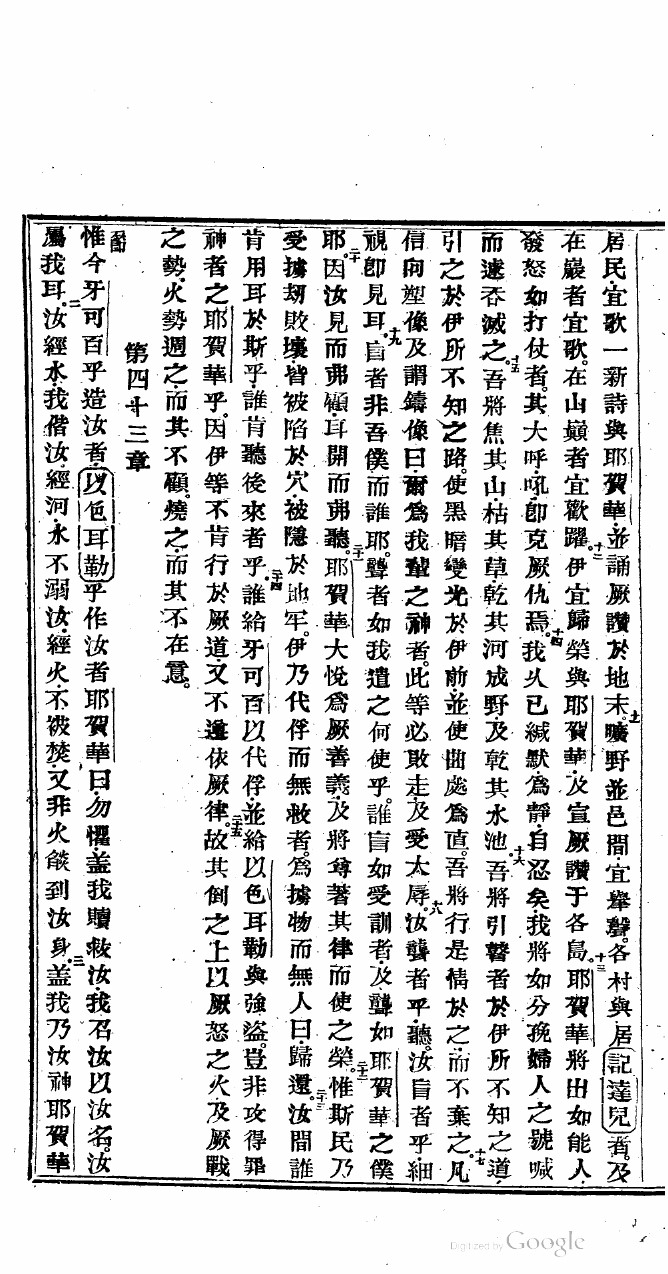 居民宜歌一新詩與耶賀華並誦厥讚於地末。十一曠野並邑間宜舉聲。各村與居記達兒者及
在巖者宜歌。在山巔者宜歡躍。十二伊宜歸榮與耶賀華及宣厥讚于各島。十三耶賀華將出如能人
發怒如打仗者。其大呼吼卽克厥仇焉。十四我久已緘默爲靜自忍矣。我將如分娩婦人之號喊
而遽吞滅之。十五吾將焦其山枯其草乾其河成野及乾其水池。十六吾將引瞽者於伊所不知之道
引之於伊所不知之路。使黑暗變光於伊前並使曲處爲直。吾將行是情於之而不棄之。十七凡
信向塑像及謂鑄像曰爾爲我輩之神者。此等必敗走及受大辱。十八汝聾者乎聽。汝盲者乎細
視卽見耳。十九盲者非吾僕而誰耶。聾者如我遣之何使乎。誰盲如受訓者及聾如耶賀華之僕
耶。二十因汝見而弗顧耳開而弗聽。二十一耶賀華大悅爲厥善義及將尊著其律而使之榮。二十二惟斯民乃
受擄刼敗壞皆被陷於穴被隱於地牢。伊乃代俘而無救者。爲擄物而無人曰歸還。二十三汝間誰
肯用耳於斯乎。誰肯聽後來者乎。二十四誰給牙可百以代俘並給以色耳勒與強盜。豈非攻得罪
神者之耶賀華乎。因伊等不肯行於厥道又不遵依厥律。二十五故其倒之上以厥怒之火及厥戰
之勢。火勢週之而其不顧。燒之而其不在意。
第四十三章
一節惟今牙可百乎造汝者以色耳勒乎作汝者耶賀華曰勿懼。蓋我贖救汝我召汝以汝名。汝
屬我耳。二汝經水我偕汝。經河水不溺汝。經火不被焚又非火燄到汝身。三蓋我乃汝神耶賀華
Digitized by Google